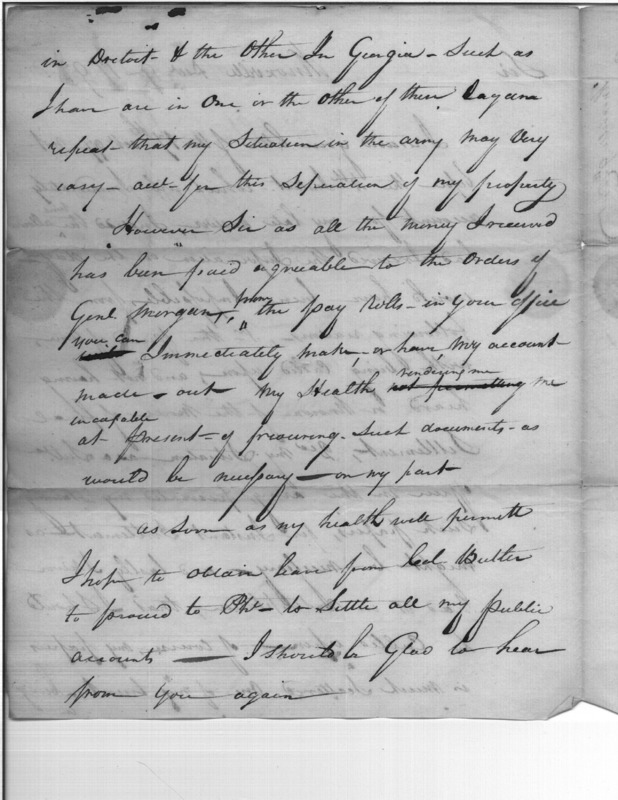 in Detroit - & the Other In Georgia - Such as
I have are in One or the Other of these I again
repeat - that my Situation in the army may Very
easy - acct - for this Seperation of my property
However Sir as all the money I received
has been paid agreable to the Orders of
Genl. Morgan, from the pay Rolls - in your office
you can Immeciately make - or have, my account -
made - out my Health rendering me not permitting me
incapable
at Present - of procuring - Such documents - as
would be necessary - on my part
as soon as my health will permitt
I hope to obtain leave from Col. Butler
to proceed to Pha - to Settle all my public
accounts — I should be Glad to hear
from you again